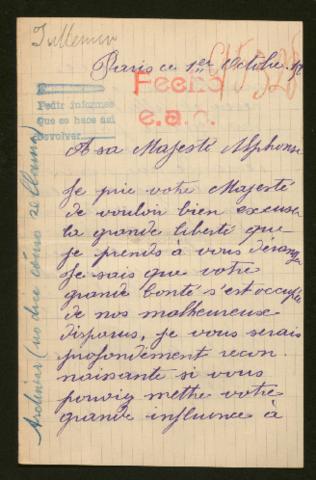 Paris ce 1er Octobre
Fecho
e.a.c.
Pedir informes
Que se hace así
Devolver
A sa Majesté Alphonse
Je prie votre Majesté
de vouloir bien excuser
la grande liberté que
je prends à vous déranger
Je sais que votre
grande bonté s'est occupée
de nos malheureuse
disparus, je vous serais
profondément recon
naisante si vous
pouviez methre votre
grande influence à
Archivar (no dice cómo se llama)